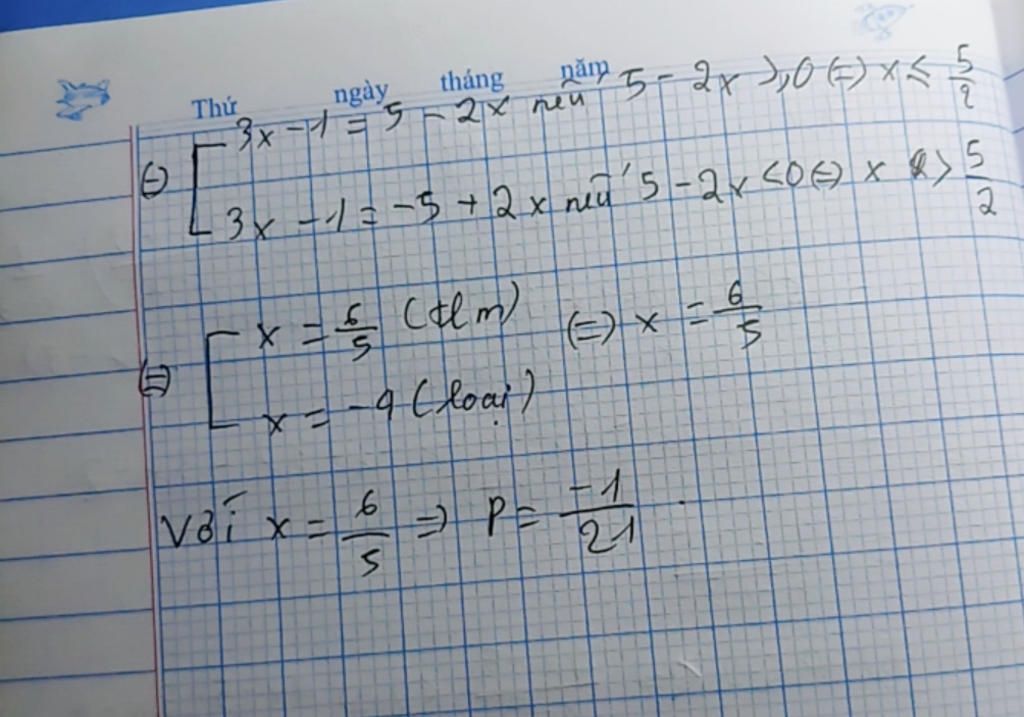 Thứ ngày tháng năm
(=) 3x - 1 = 5 - 2x nếu 5 - 2x ≥ 0 (=) x ≤ 5/2
3x - 1 = -5 + 2x nếu 5 - 2x < 0 (=) x > 5/2
(=) x = 6/5 (tm) (=) x = 6/5
x = -4 (loại)
Với x = 6/5 => P = -1/21.